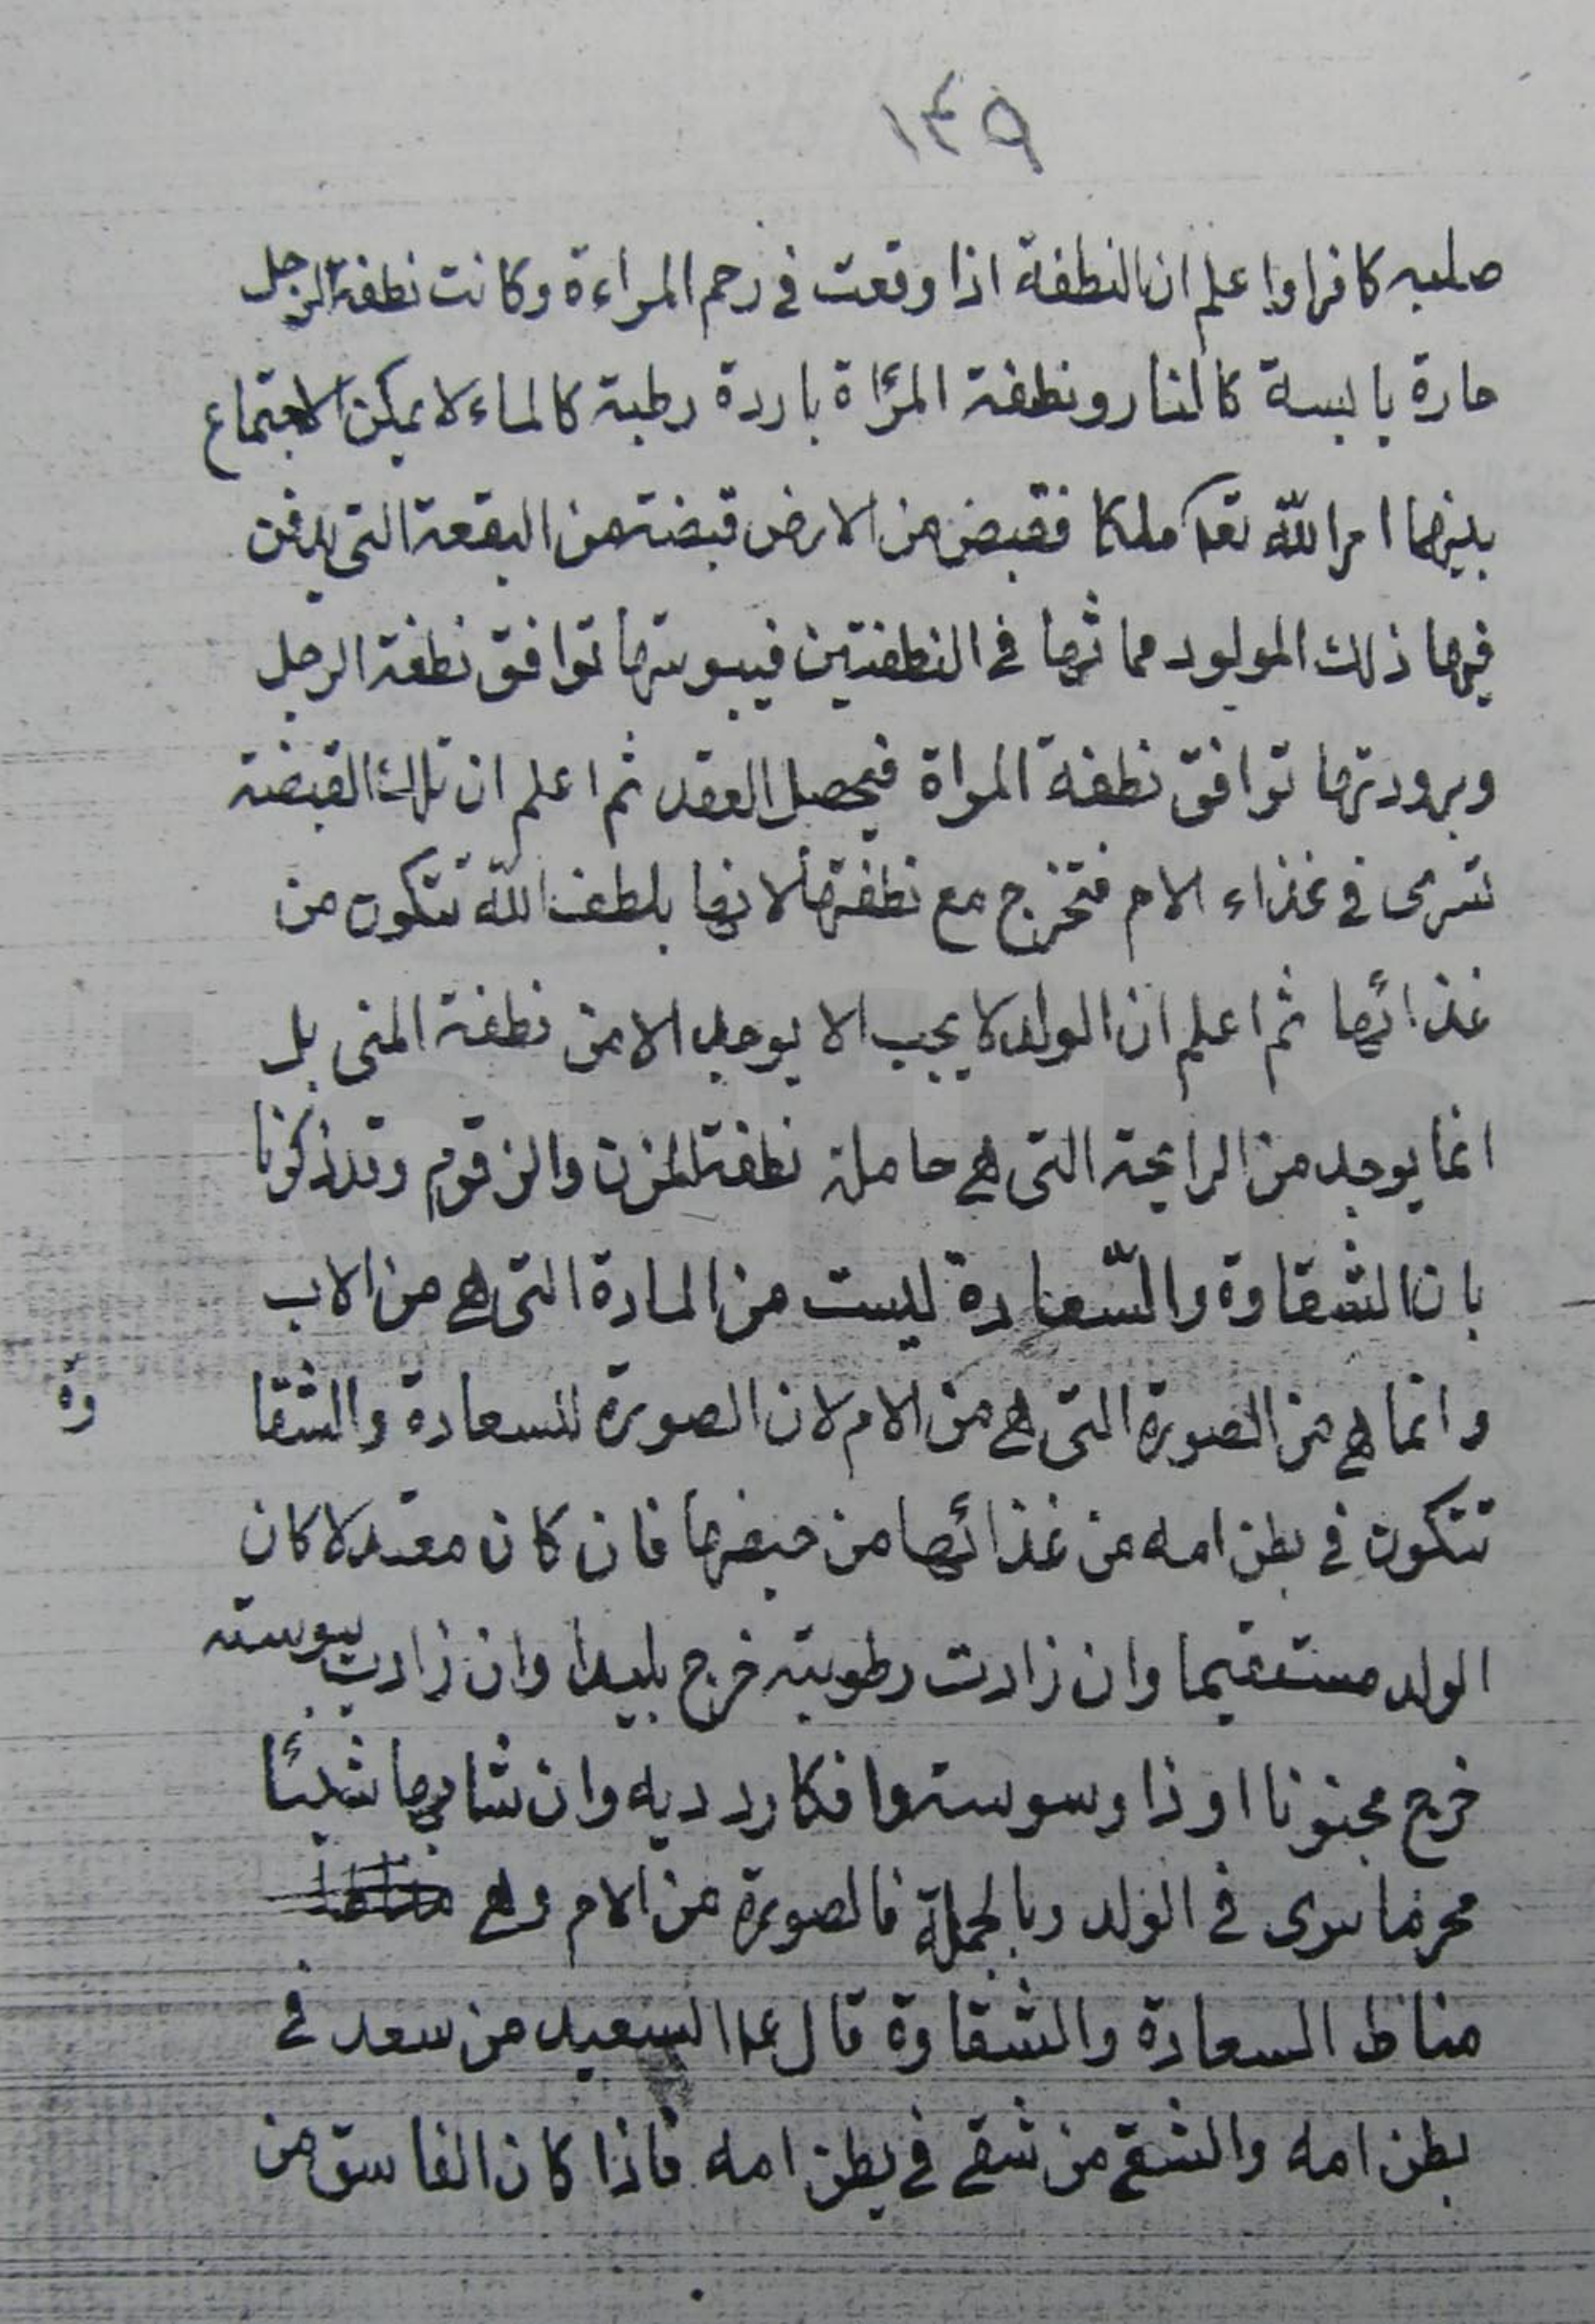 ١٤٩
صلبه كافرا واعلم ان النطفة اذا وقعت في رحم المراءة وكانت نطفة الرجل
حارة يابسة كالنار ونطفة المرأة باردة رطبة كالماء لا يمكن الاجتماع
بينهما امر الله تعا ملكا فقبض من الارض قبضة من البقعة التي يدفن
فيها ذلك المولود مماثها في النطفتين فيبوستها توافق نطفة الرجل
وبرودتها توافق نطفة المراة فيحصل العقد ثم اعلم ان تلك القبضة
تسرى في غذاء الام فتخرج مع نطفتها لانها بلطف الله تتكون من
غذائها ثم اعلم ان الولد لا يجب الا يوجد الا من نطفة المنى بل
انما يوجد من الرايحة التي هي حاملة نطفة المزن والزقوم وقد ذكرنا
بان الشقاوة والسّعادة ليست من المادة التي هي من الاب
وانما هي من الصورة التي هي من الام لان الصورة للسعادة والشقا
وة
تتكون في بطن امه من غذائها من حيضها فان كان معتدلا كان
الولد مستقيما وان زادت رطوبته خرج بليدا وان زادت يبوسته
خرج مجنونا او ذا وسوسة وافكار رديه وان شابها شيئا
محرما سرى في الولد وبالجملة فالصورة من الام وهي
مناط السعادة والشقاوة قال ع السعيد من سعد في
بطن امه والشقي من شقي في بطن امه فاذا كان الفاسق من